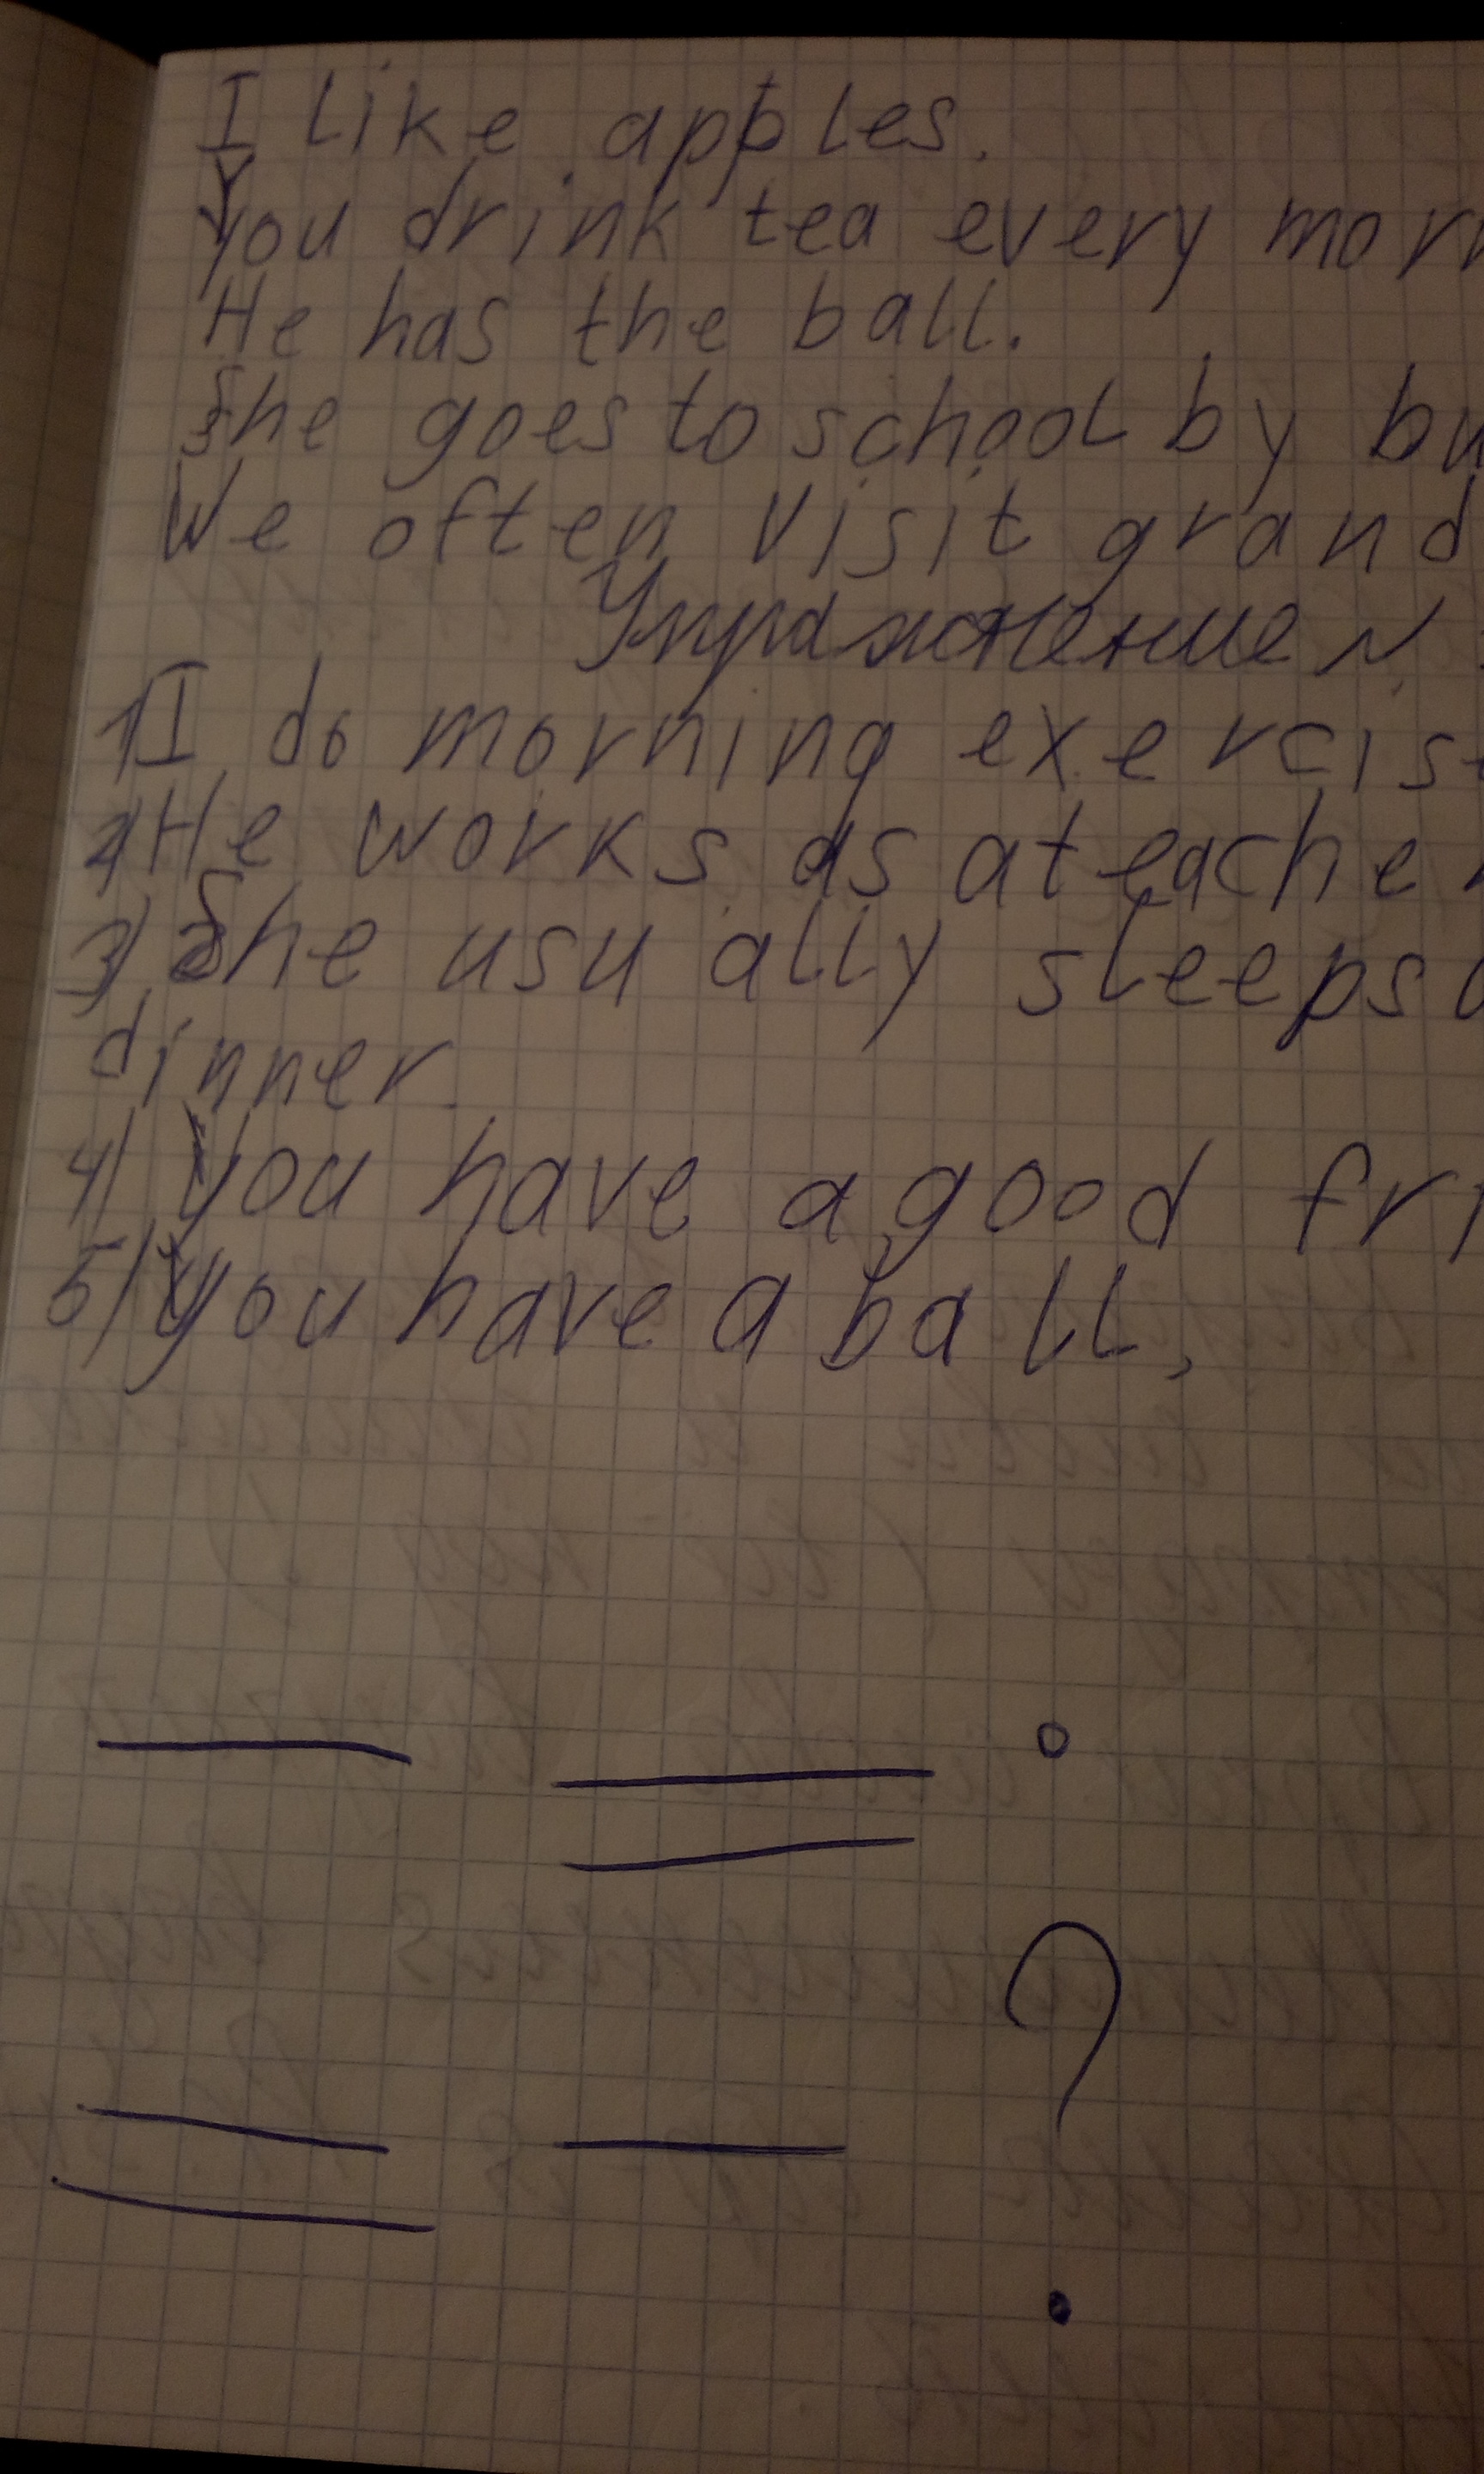 I like apples.
You drink tea every morn
He has the ball.
She goes to school by bu
We often visit grand
Упражнение N
1) I do morning exercise
2) He works as a teacher
3) She usually sleeps
dinner.
4) You have a good fri
5) You have a ball,
?